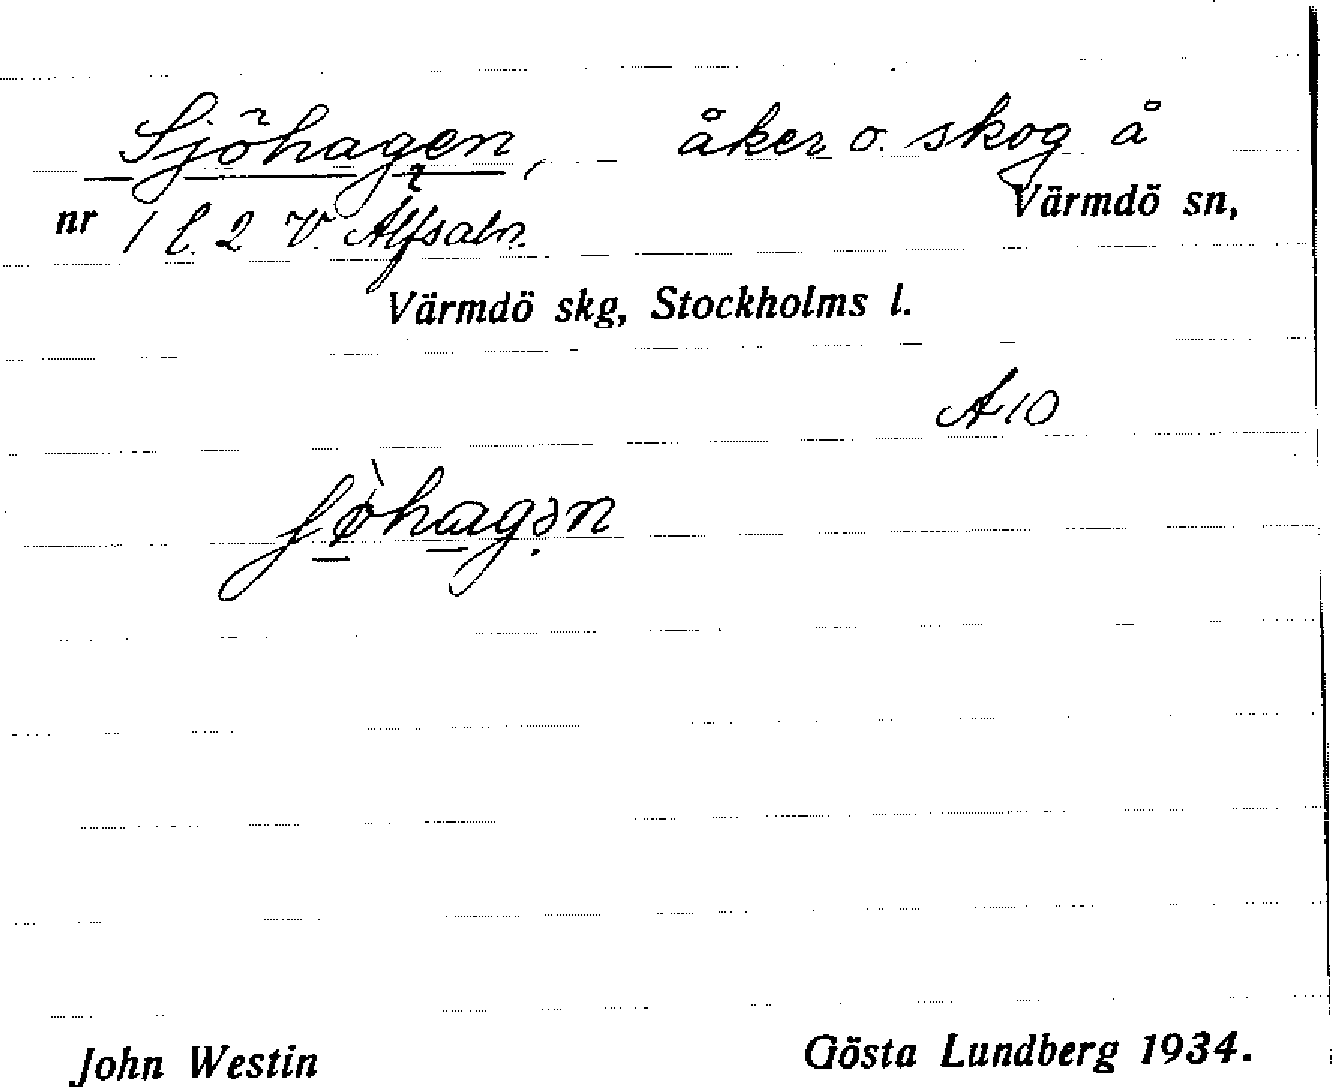 Sjöhagen, åker o. skog å
Värmdö sn,
nr 1 l. 2 V. Alfsabr.
Värmdö skg, Stockholms l.
A10
ʃø̀hagən
John Westin
Gösta Lundberg 1934.